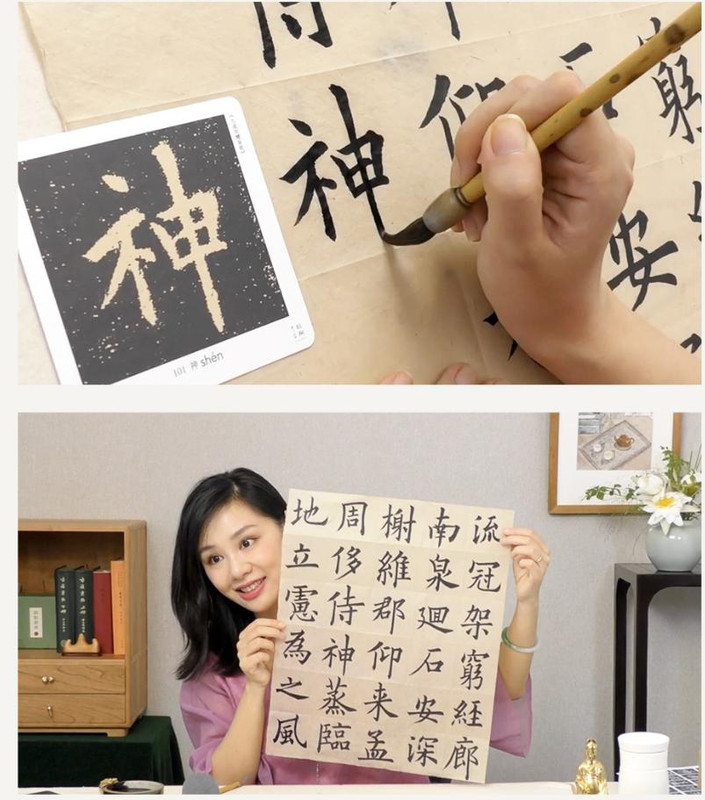 神
101 神 shén
窮
安
仰
神
流冠架窮経廊
南泉廻石安深
榭維郡仰来孟
周侈侍神蒸臨
地立憲為之風